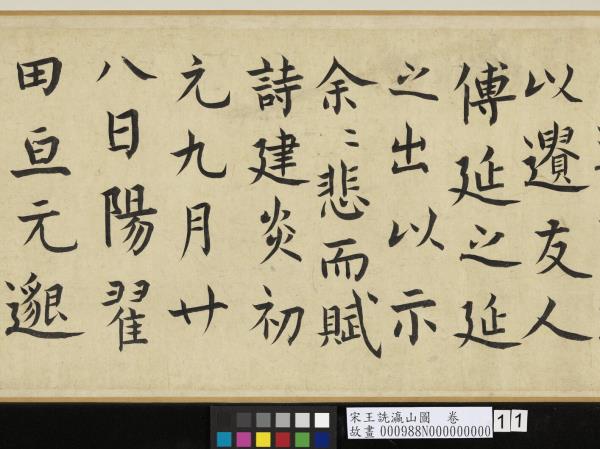 以遺友人
傅延之延
之出以示
余〻悲而賦
詩建炎初
元九月廿
八日陽翟
田亘元邈
宋王詵瀛山圖 卷
故畫 000988N000000000
11